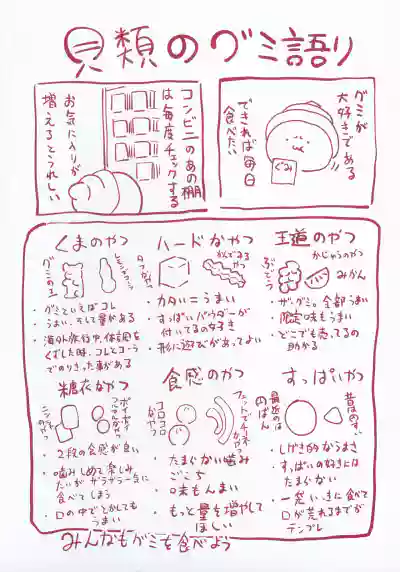 貝類のグミ語り
グミが
大好きである
できれば毎日
食べたい
ぐみ
コンビニのあの棚
は毎度チェックする
お気に入りが
増えるとうれしい
王道のやつ
かじゅうのやつ
ぶどう
みかん
・ザ・グミ。全部うまい
・限定味もうまい
・どこでも売ってるの
助かる
ハードなやつ
・カタい=うまい
・すっぱいパウダーが
付いてるの好き
・形に遊びがあってよい
くまのやつ
グミの王
・グミといえばコレ
・うまい、そして量がある
・海外旅行中、体調を
くずした時、コレとコーラ
でのりきった事がある
すっぱいやつ
・しげき的なうまさ
・すっぱいの好きには
たまぐない
・一袋いっきに食べて
口が荒れるまでが
テンプレ
食感のやつ
コロコロ
・たまぐない噛み
ごこち
・味もんまい
・もっと量を増やして
ほしい
糖衣なやつ
・2段の食感が良い
・噛みしめて楽しみ
たいがザラザラ一気に
食べてしまう
・口の中でとかしても
うまい
みんなもグミを食べよう